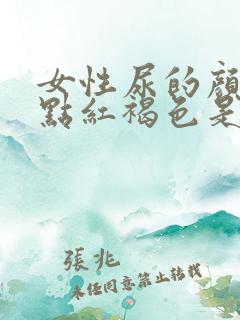 女性尿的顏
點紅褐色是
張兆
未經同意禁止轉載